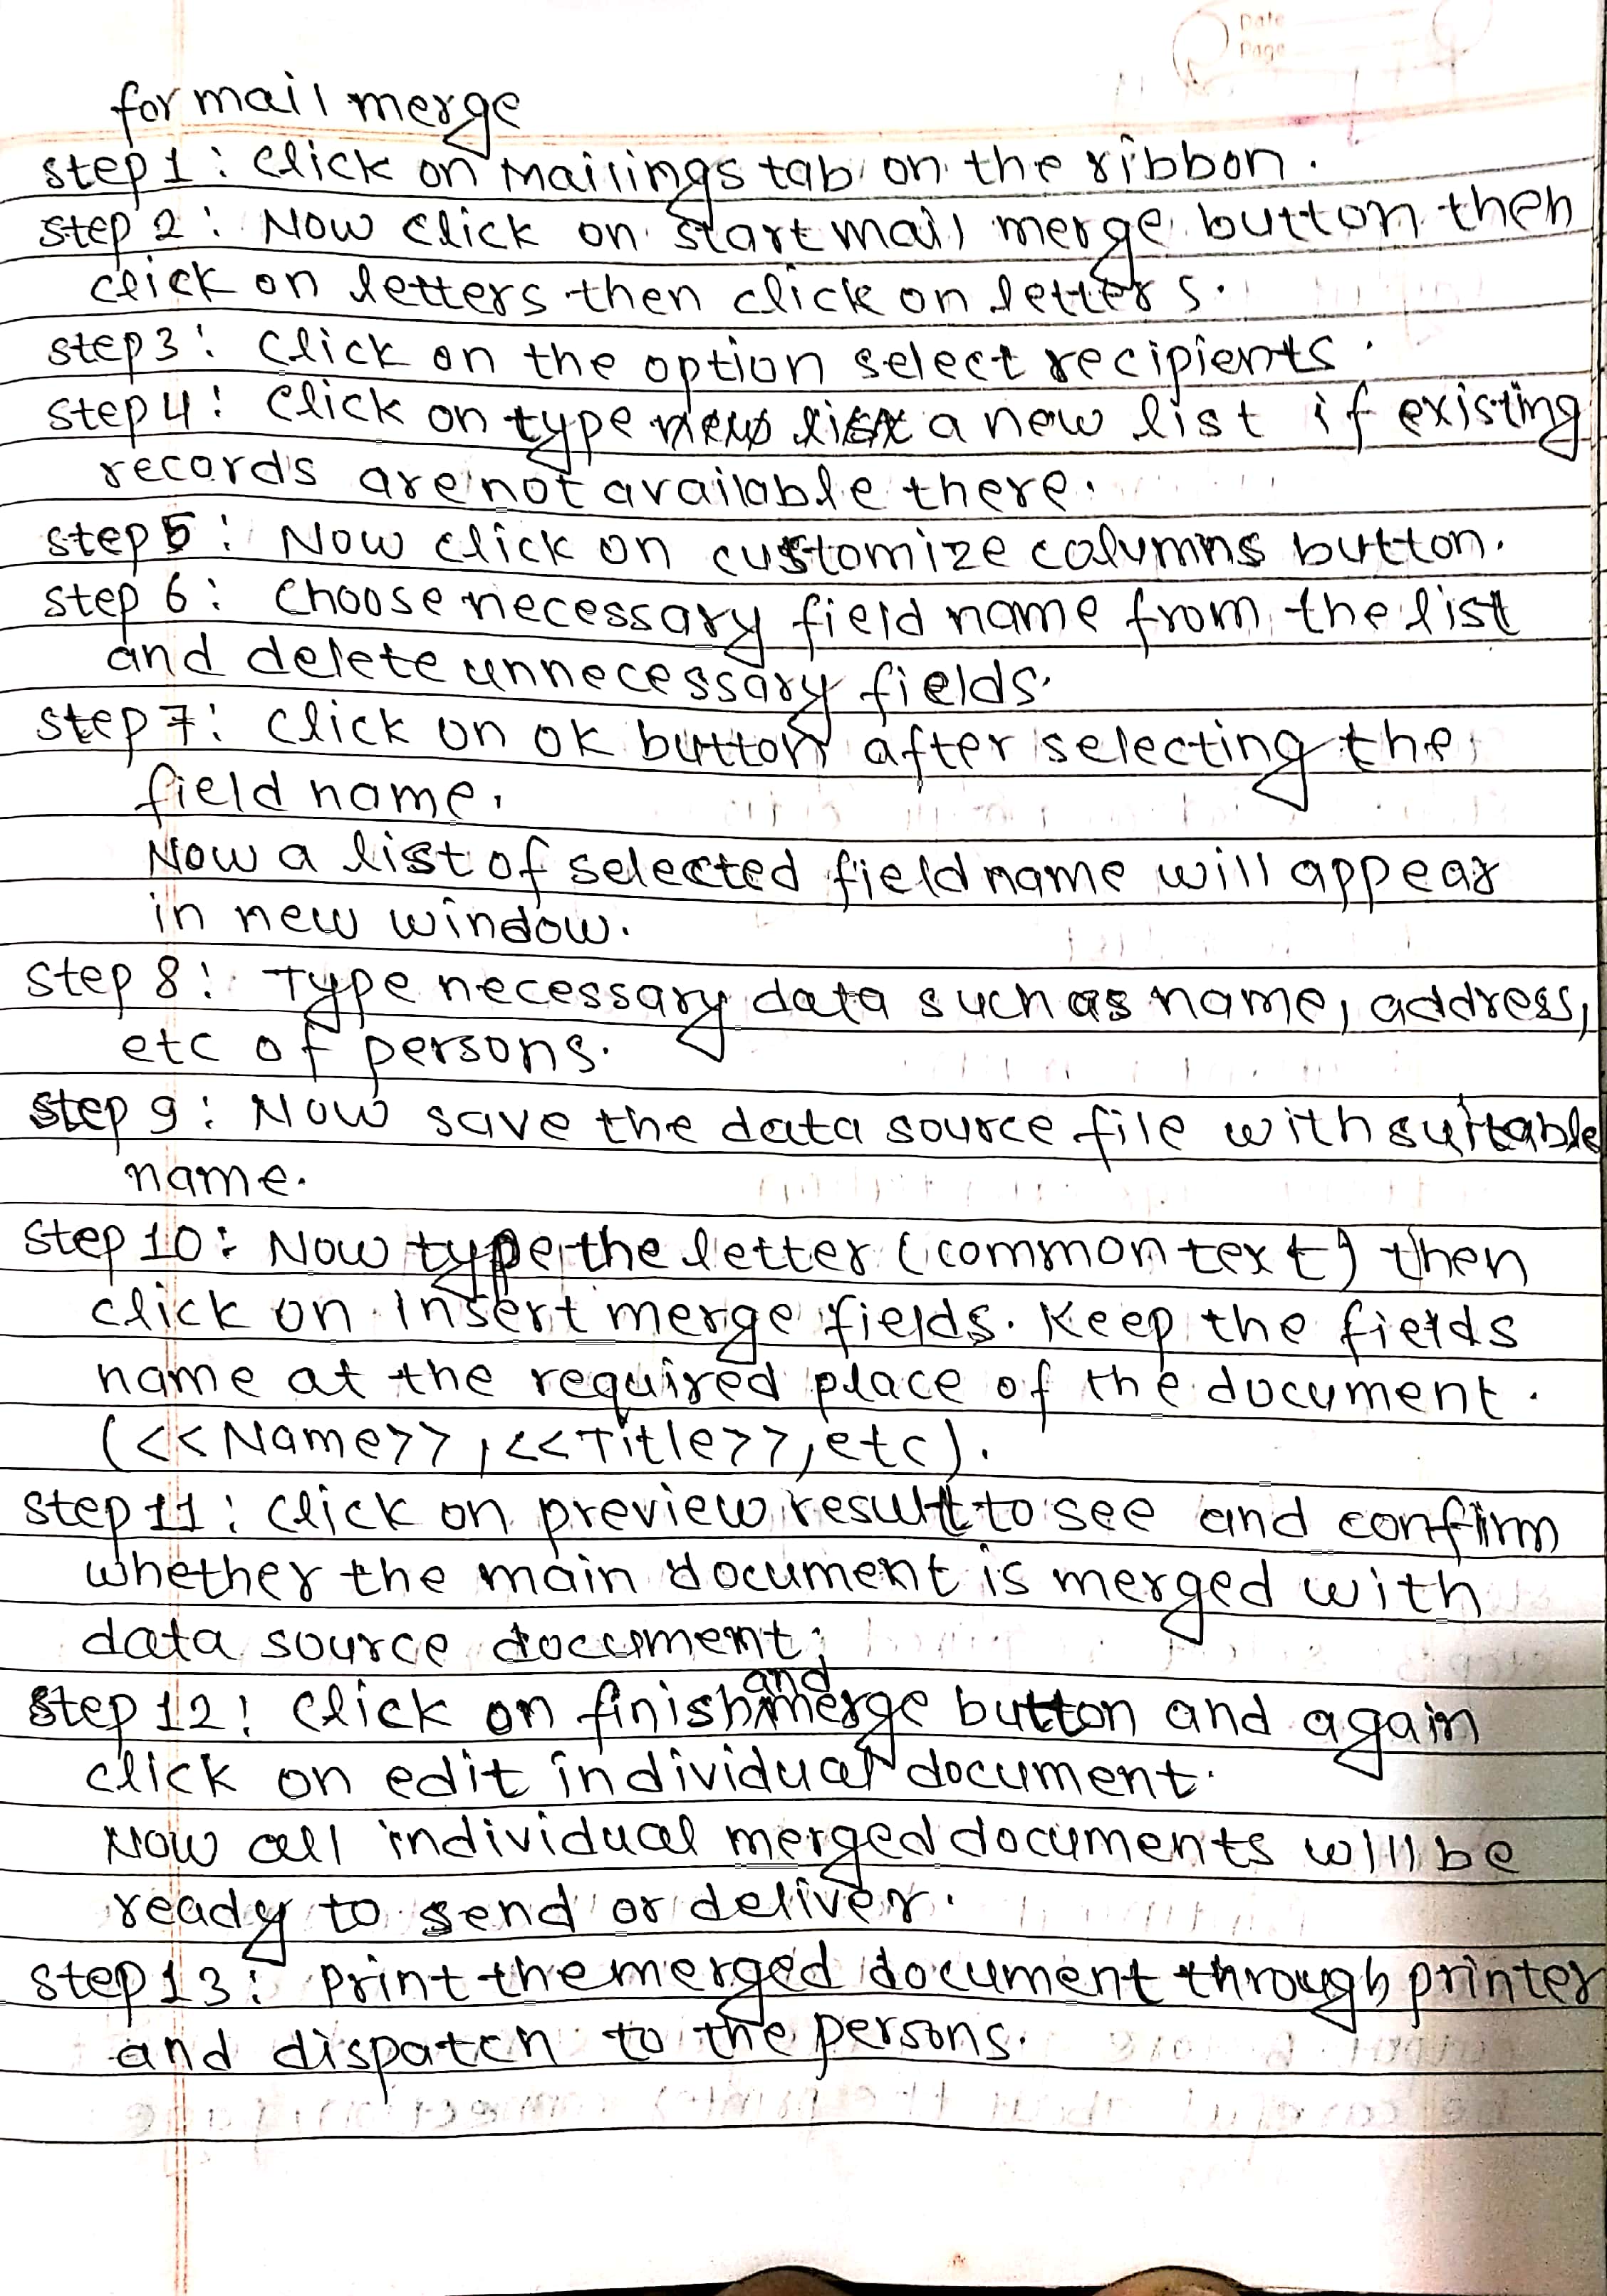 Date
Page
for mail merge
step 1 : click on Mailings tab on the ribbon.
step 2 : Now click on start mail merge button then
click on letters then click on letters.
step 3 : click on the option select recipients.
step 4 : click on type new list a new list if existing
records are not available there.
step 5 : Now click on customize columns button.
step 6 : choose necessary field name from the list
and delete unnecessary fields.
step 7 : click on ok button after selecting the
field name.
Now a list of selected field name will appear
in new window.
step 8 : Type necessary data such as name, address,
etc of persons.
step 9 : Now save the data source file with suitable
name.
step 10 : Now type the letter (common text) then
click on Insert merge fields. Keep the fields
name at the required place of the document.
(<<Name>>, <<Title>>, etc).
step 11 : click on preview result to see and confirm
whether the main document is merged with
data source document.
step 12 : click on finish and merge button and again
click on edit individual document.
Now all individual merged documents will be
ready to send or deliver.
step 13 : print the merged document through printer
and dispatch to the persons.